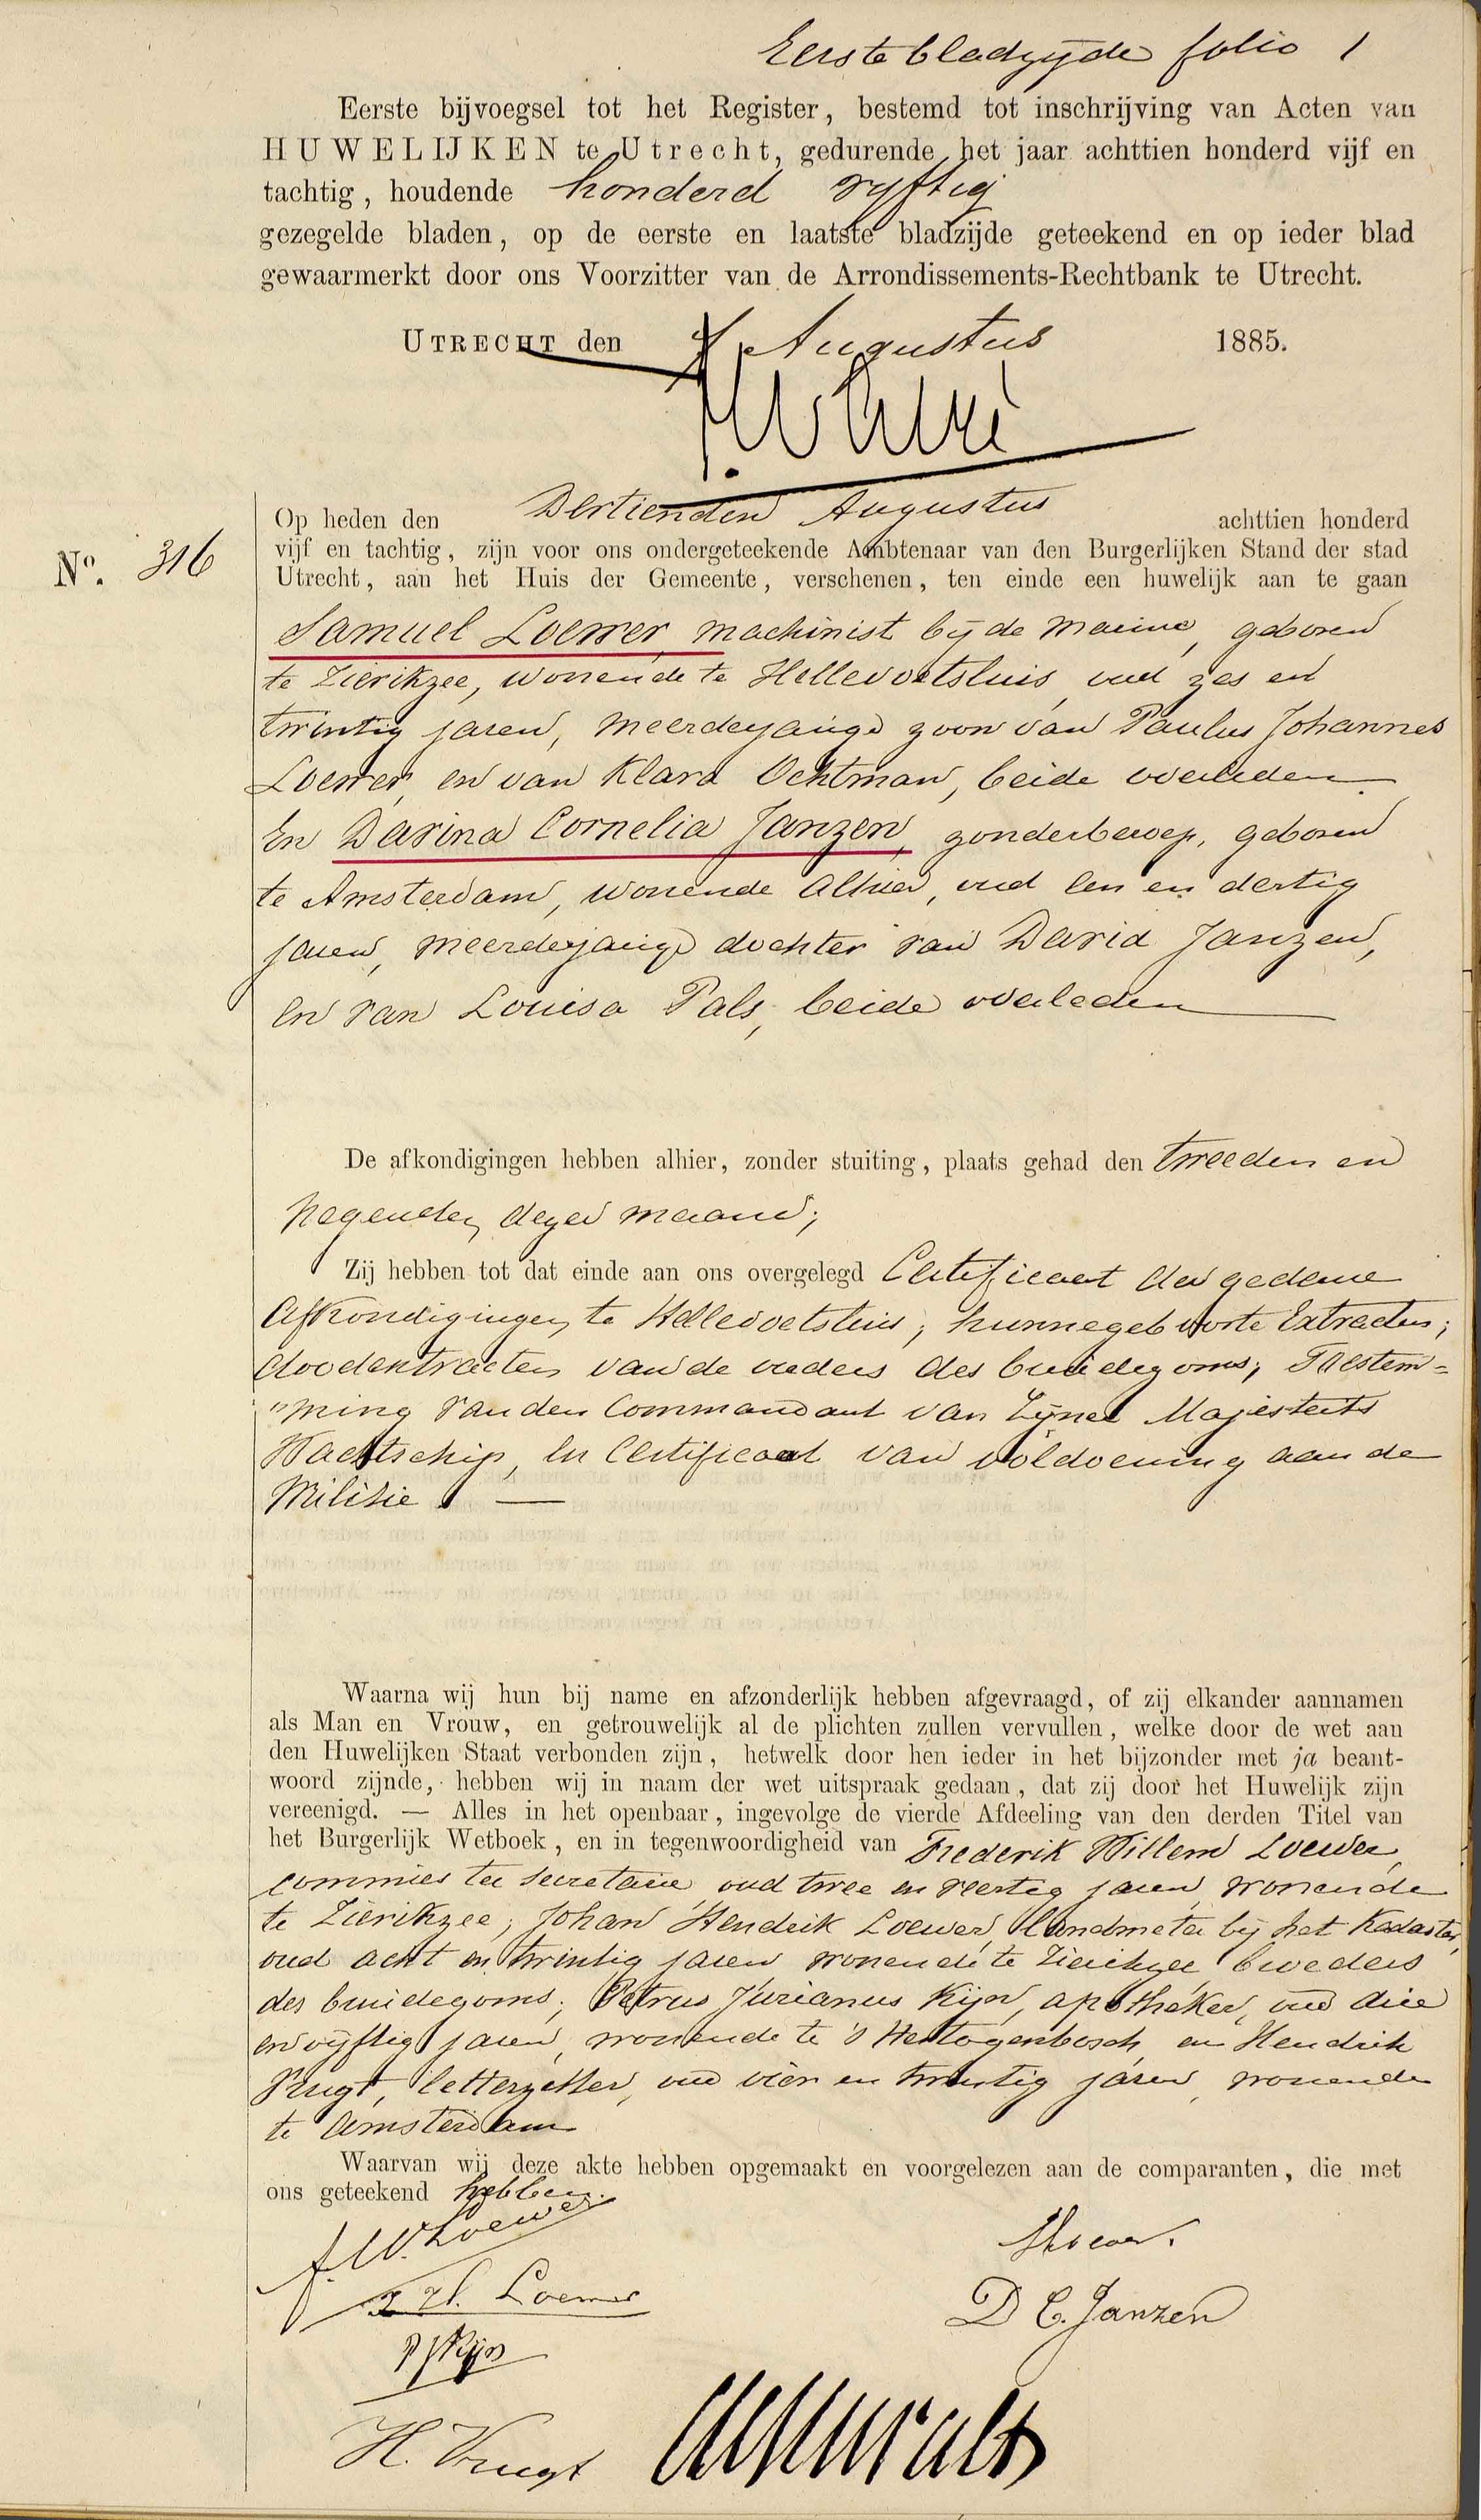 Eerste bladzyde folio 1
Eerste bijvoegsel tot het Register, bestemd tot inschrijving van Acten van
HUWELIJKEN te Utrecht, gedurende het jaar achttien honderd vijf en
tachtig, houdende honderd vyftig
gezegelde bladen, op de eerste en laatste bladzijde geteekend en op ieder blad
gewaarmerkt door ons Voorzitter van de Arrondissements-Rechtbank te Utrecht.
UTRECHT den Augustus 1885.
Op heden den Dertienden Augustus achttien honderd
vijf en tachtig, zijn voor ons ondergeteekende Ambtenaar van den Burgerlijken Stand der stad
No. 316
Utrecht, aan het Huis der Gemeente, verschenen, ten einde een huwelijk aan te gaan
Samuel Loewer, machinist by de Marine, geboren
te Zierikzee, wonende te Hellevoetsluis, oud zes en
twintig jaren, meerderjarige zoon van Paulus Johannes
Loewer, en van Klara Ochtman, beide overleden
En Davina Cornelia Janzen, zonder beroep, geboren
te Amsterdam, wonende alhier, oud een en dertig
jaren, meerderjarige dochter van David Janzen,
en van Louisa Pals, beide overleden
De afkondigingen hebben alhier, zonder stuiting, plaats gehad den tweeden en
negenden dezer maand;
Zij hebben tot dat einde aan ons overgelegd Certificaat der gedane
afkondigingen te Hellevoetsluis; hunne geboorte Extracten;
doodextracten van de ouders des bruidegoms; Toestem=
"ming van den Commandant van Zyner Majesteits
Wachtschip, en Certificaat van voldoening aan de
Militie
Waarna wij hun bij name en afzonderlijk hebben afgevraagd, of zij elkander aannamen
als Man en Vrouw, en getrouwelijk al de plichten zullen vervullen, welke door de wet aan
den Huwelijken Staat verbonden zijn, hetwelk door hen ieder in het bijzonder met ja beant-
woord zijnde, hebben wij in naam der wet uitspraak gedaan, dat zij door het Huwelijk zijn
vereenigd. — Alles in het openbaar, ingevolge de vierde Afdeeling van den derden Titel van
het Burgerlijk Wetboek, en in tegenwoordigheid van Frederik Willem Loewer,
commies ter secretarie, oud twee en veertig jaren, wonende
te Zierikzee; Johan Hendrik Loewer, landmeter by het Kadaster,
oud acht en twintig jaren wonende te Zierikzee broeders
des bruidegoms; Petrus Jurianus Kijn, apotheker, oud drie
en vyftig jaren, wonende te 's Hertogenbosch, en Hendrik
Vrugt, letterzetter, oud vier en twintig jaren, wonende
te Amsterdam
Waarvan wij deze akte hebben opgemaakt en voorgelezen aan de comparanten, die met
ons geteekend hebben.
F. W. Loewer
SLoewer.
J. H. Loewer
D C. Janzen
P J Kijn
H. Vrugt